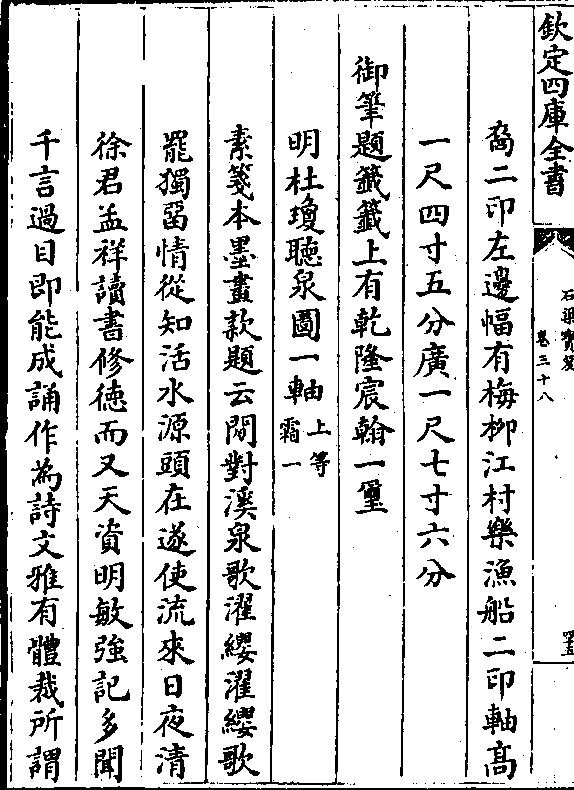 欽定四庫全書
石渠寳笈
卷三十八
裔二印左邊幅有梅柳江村樂漁船二印軸髙
一尺四寸五分廣一尺七寸六分
御筆題籖籖上有乾隆宸翰一璽
明杜瓊聴泉圖一軸上等
霜一
素箋本墨畫款題云閒對溪泉歌濯纓濯纓歌
罷獨㽞情從知活水源頭在遂使流來日夜清
徐君孟祥讀書修徳而又天資明敏強記多聞
千言過目即能成誦作為詩文雅有體裁所謂